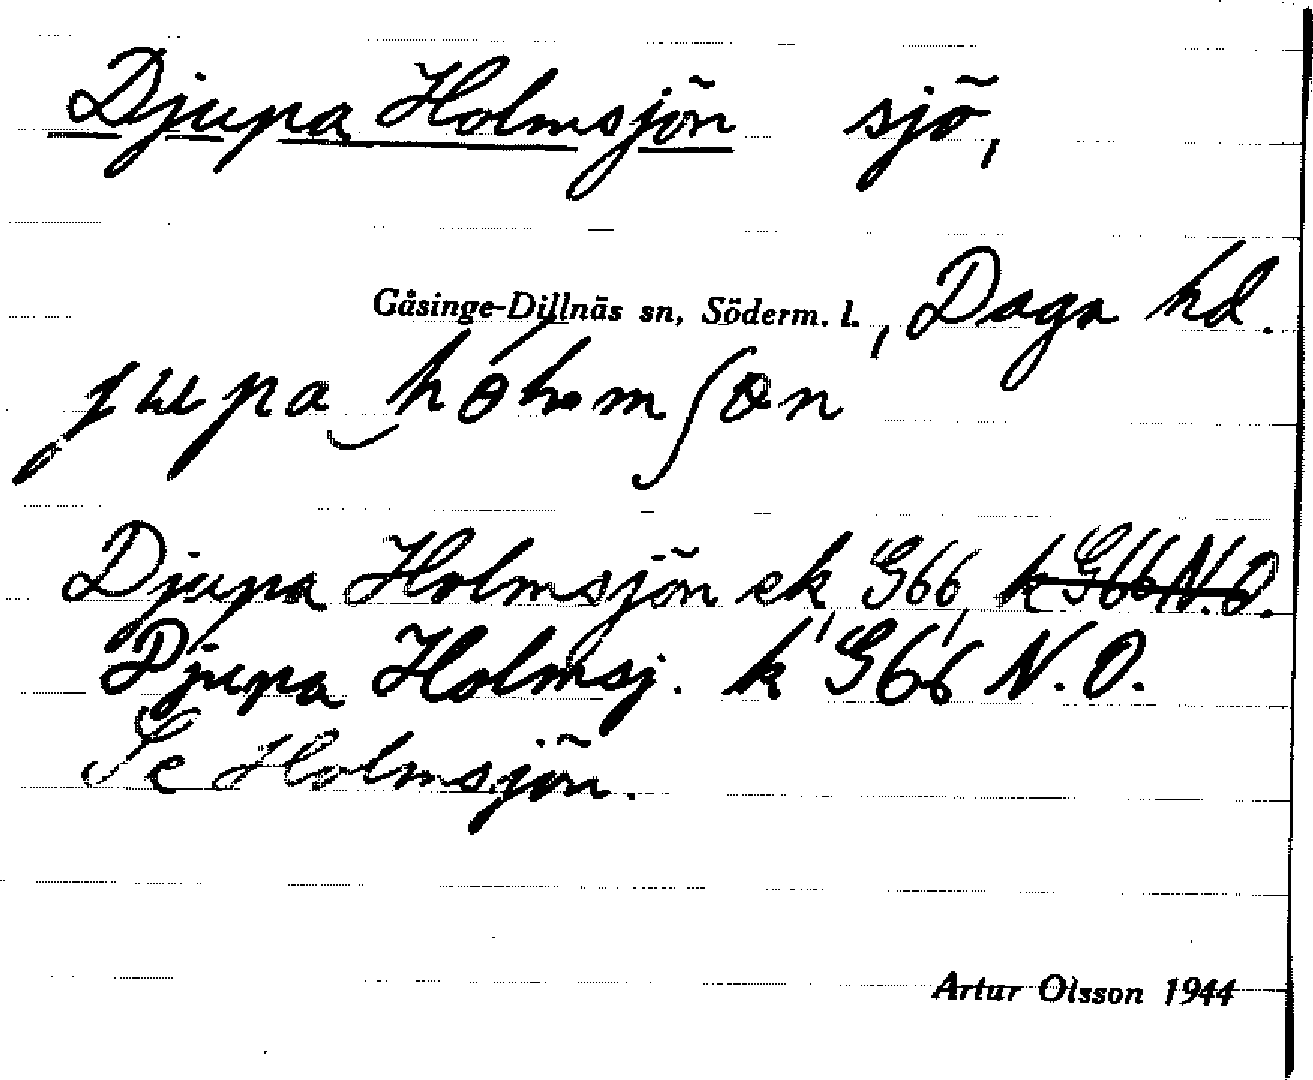 Djupa Holmsjön sjö,
Gåsinge-Dillnäs sn, Söderm. l., Daga hd.
Djupa Holmsjön ek G66, k G66 N.O.
Djupa Holmsj. k G66 N.O.
Se Holmsjön.
Artur Olsson 1944